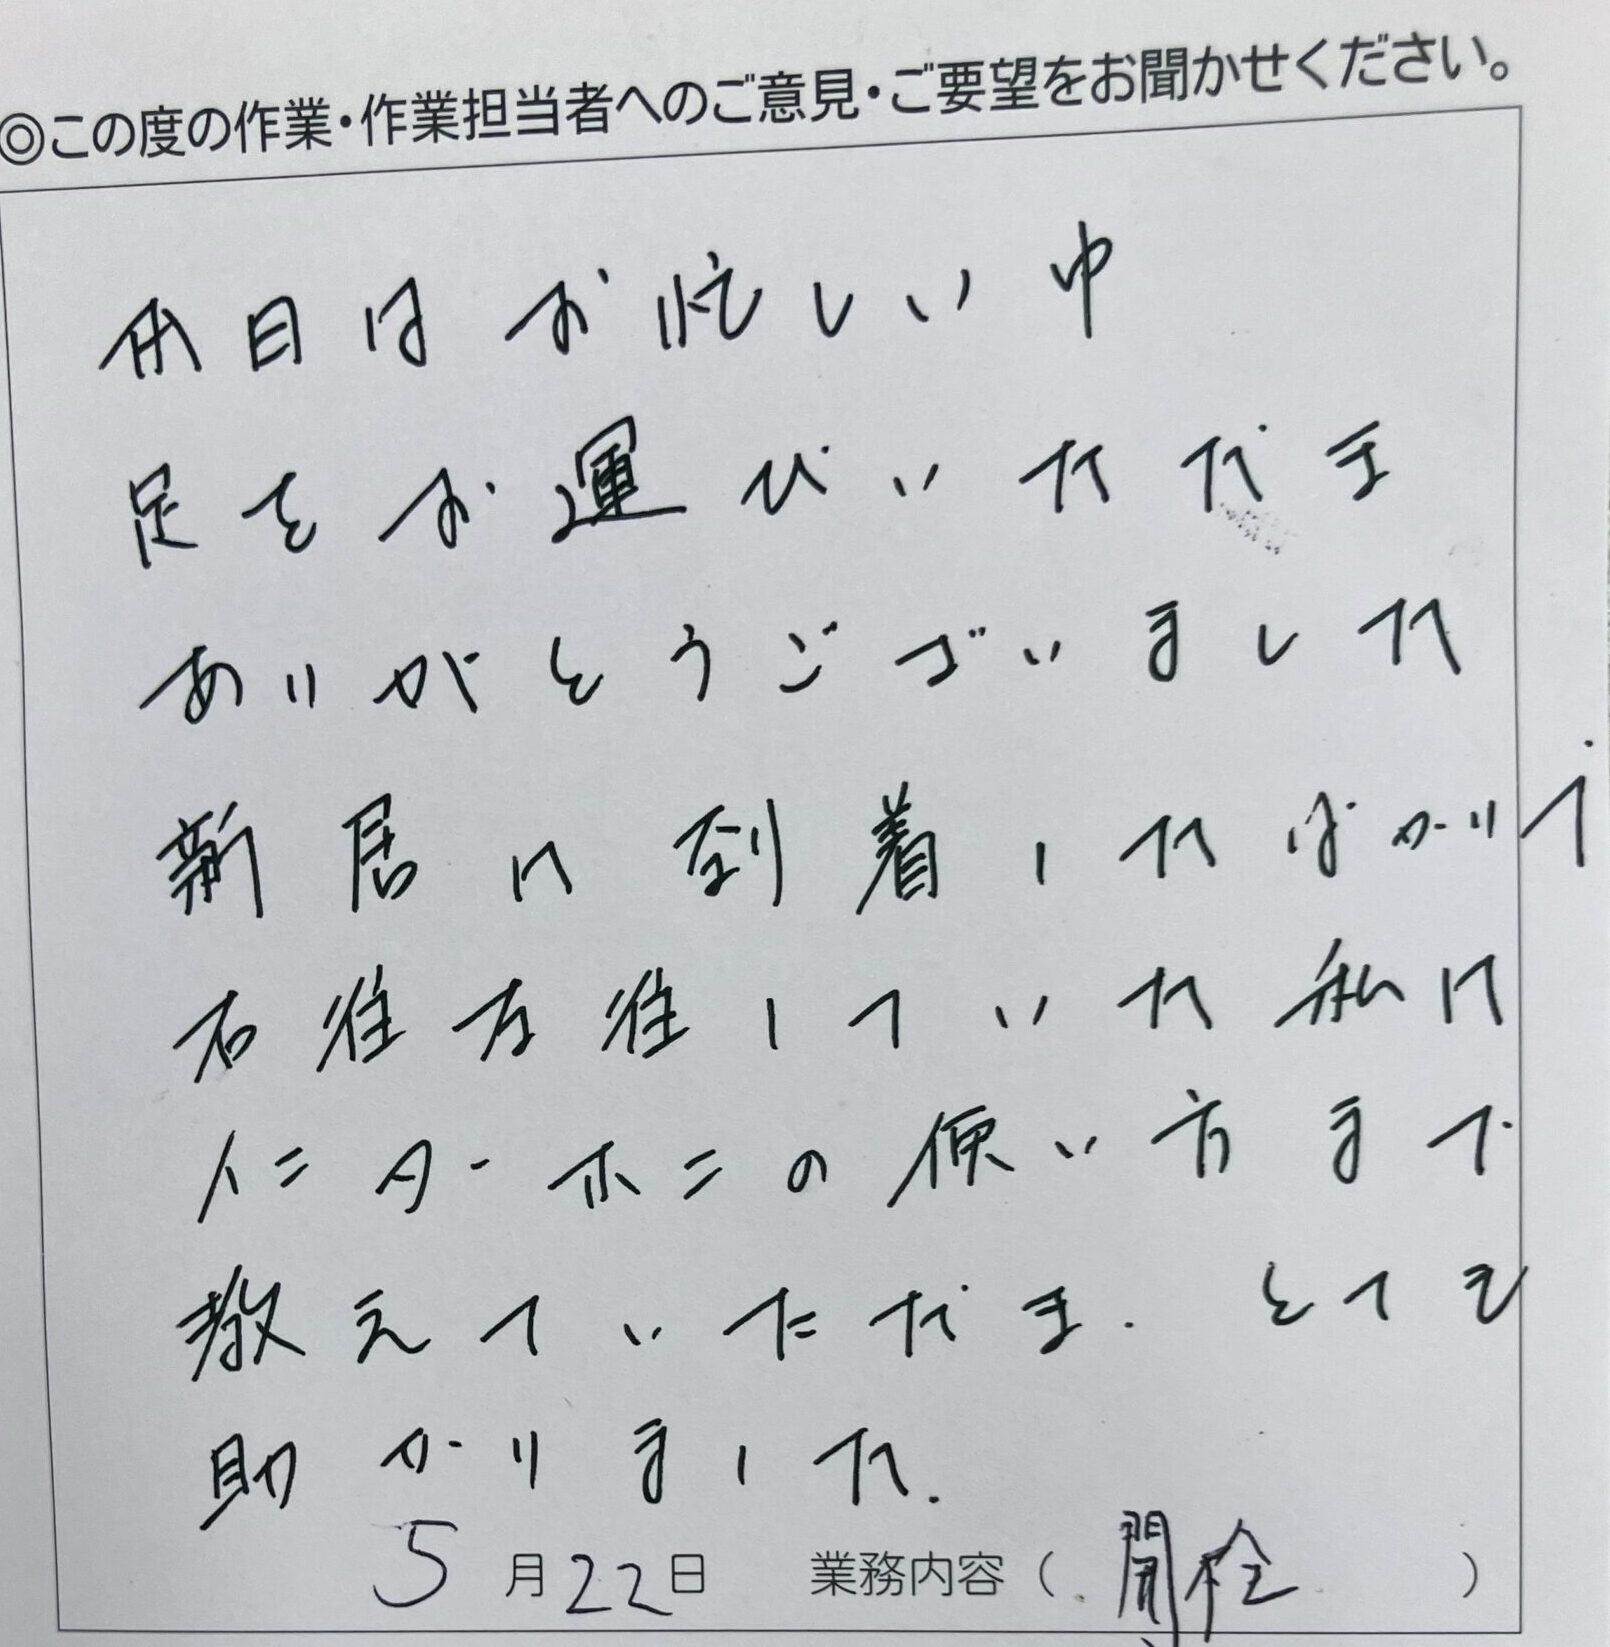 ◎この度の作業・作業担当者へのご意見・ご要望をお聞かせください。
本日はお忙しい中
足をお運びいただき
ありがとうございました
新居に到着したばかりで
右往左往していた私に
インターホンの使い方まで
教えていただき. とても
助かりました.
5月22日 業務内容（開栓）